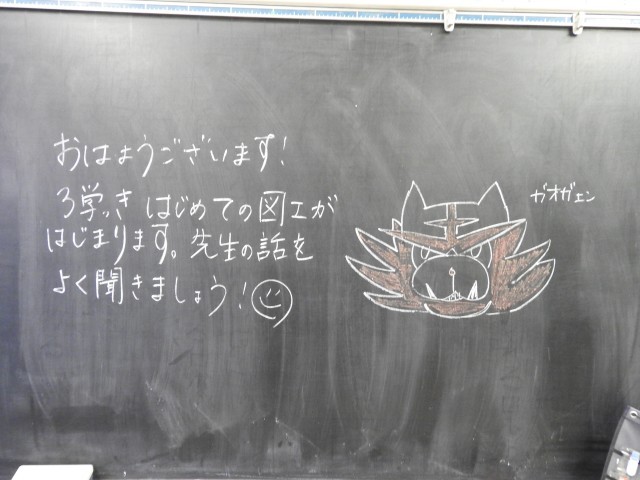 おはようございます!
3学っき はじめての図工が
はじまります。先生の話を
よく聞きましょう!
ガオガエン